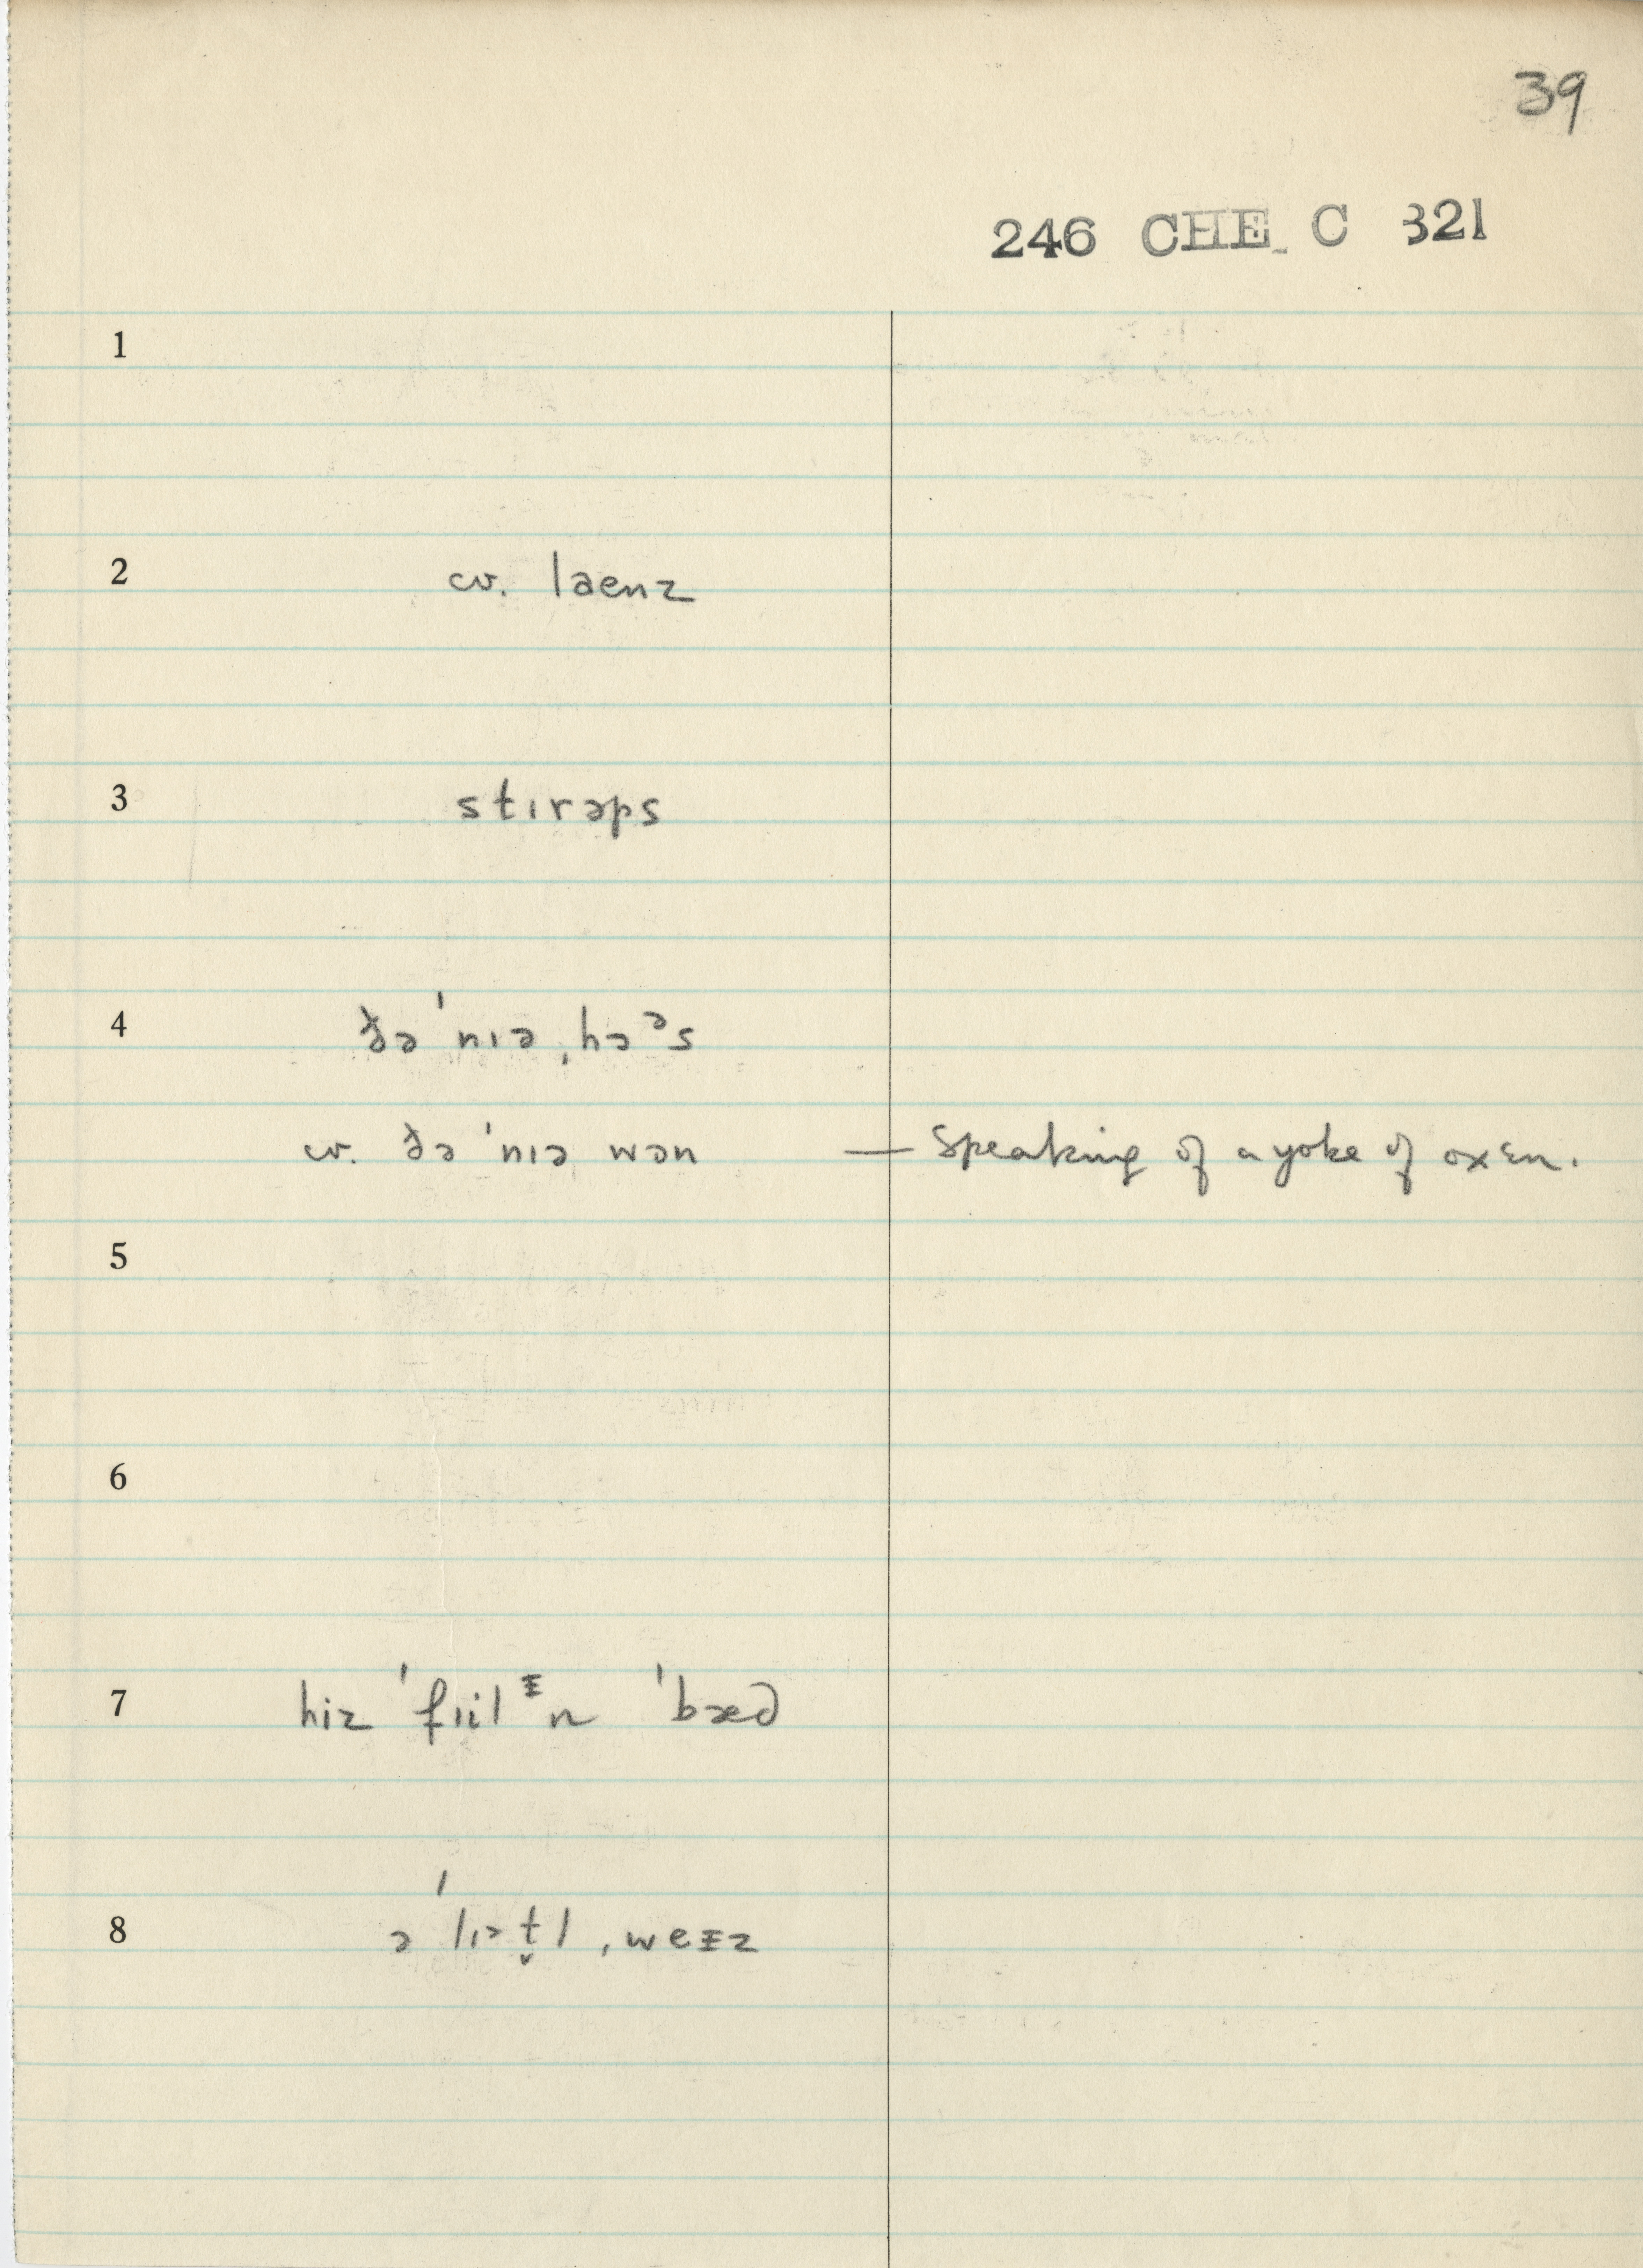 39
246 CHE C 321
1
2 cv. laenz
3 stɪrəps
4 ðə ˈnɪə ˌhɔᵊs
cv. ðə ˈnɪə wən — speaking of a yoke of oxen.
5
6
7 hiz ˈfɪilᶧn ˈbæd
8 ə ˈlɪətl̬ ˌweᵻz